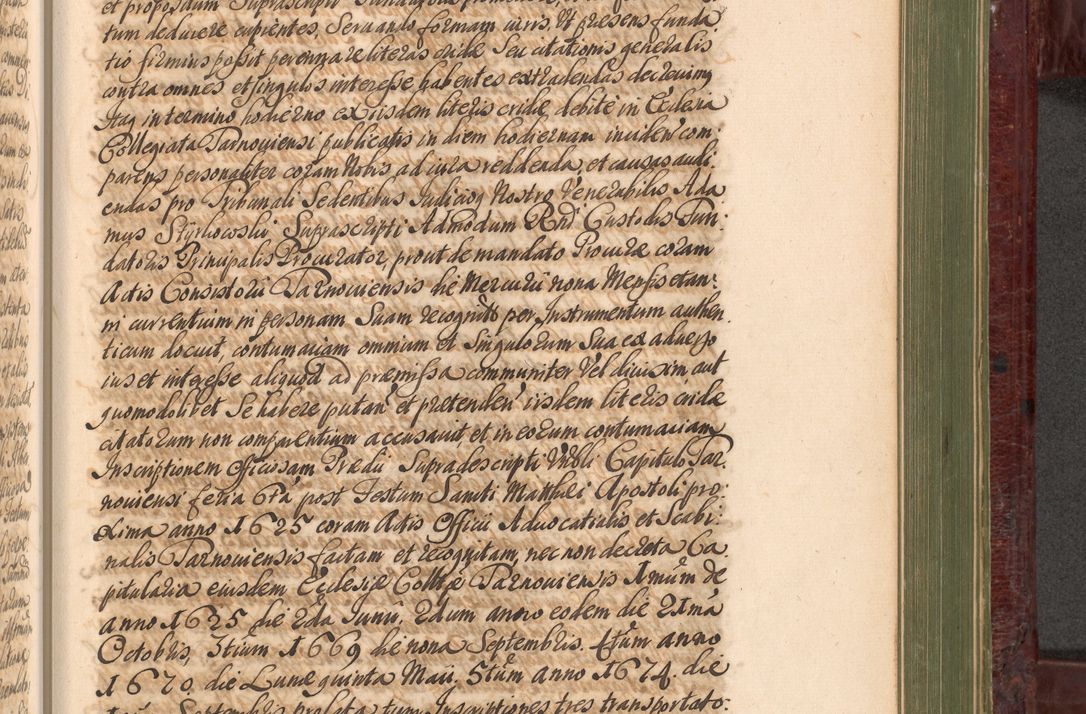 et propositum Suprascripti
tum deducere cupientes, Servando formam iuris, Ut præsens funda
tio firmius possit perennare literas cridæ Seu citationis generalis
contra omnes et singulos interesse habentes extradendas decrevimus
Itaq in termino hodierno ex iisdem literis cridæ, debite in Ecclesia
Collegiata Tarnoviensi publicatis in diem hodiernam inciden com:
parens personaliter coram Nobis ad iura reddenda, et causas audi:
endas pro Tribunali Sedentibus Iudiciaq Nostro Venerabilis Ada
mus Styrkowski Suprascripti Admodum Rndi Custodis Fun:
datoris Principalis Procurator, prout de mandato Procuræ coram
Actis Consistorii Tarnoviensis die Mercurii nona Mensis et an:
ni currentium in personam Suam recognito per Instrumentum authen
ticum docuit, contumaciam omnium et Singulorum Sua ex adverso
ius et interesse aliquod ad præmissa communiter Vel divisim, aut
quomodolibet Se habere putan et prætenden iisdem literis cridæ
citatorum non comparentium accusavit et in eorum contumaciam
Inscriptionem Officiosam Prædii Supradescripti Vrbli Capitulo Tar:
noviensi feria 6tâ post Festum Sancti Matthæi Apostoli pro:
xima anno 1625 coram Actis Officii Advocatialis et Scabi:
nalis Tarnoviensis factam et recognitam, nec non decreta Ca.
pitularia eiusdem Ecclesiæ Colltæ Tarnoviensis 1mum de
anno 1635 die 2da Iunii. 2dum anno eodem die 21mâ
Octobris, 3tium 1669 die nona Septembris. 4tum anno
1670. die Lunæ quinta Maii. 5tum anno 1674. die
Septembris prolata tum Inscriptiones tres transportato: